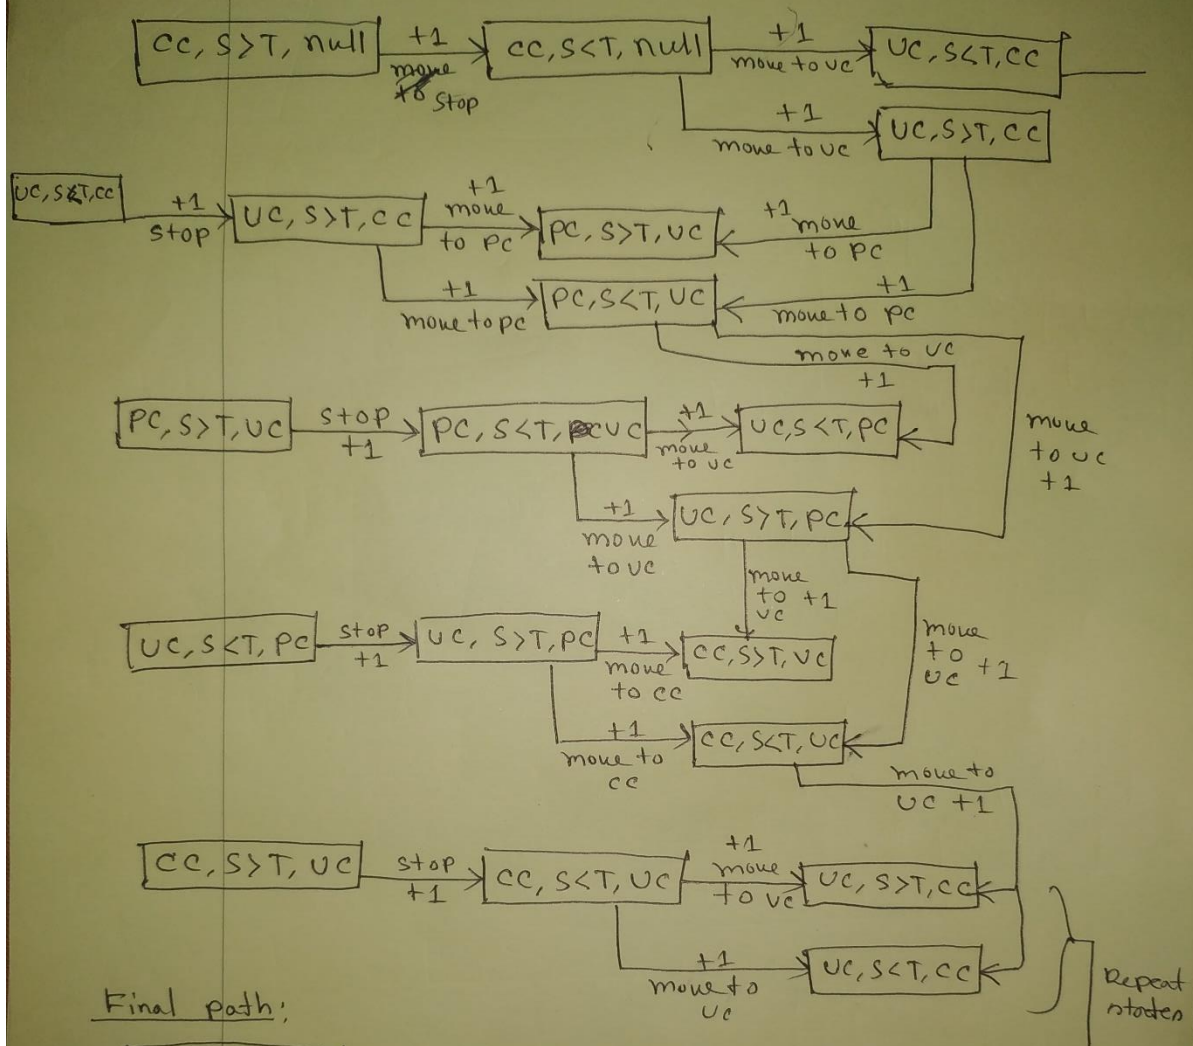 CC, S>T, null
+1
move
to stop
CC, S<T, null
+1
move to UC
UC, S<T, CC
+1
move to UC
UC, S>T, CC
UC, S<T, CC
+1
stop
UC, S>T, CC
+1
move
to PC
PC, S>T, UC
+1 move
to PC
+1
move to PC
PC, S<T, UC
+1
move to PC
move to UC
+1
move
to UC
+1
PC, S>T, UC
stop
+1
PC, S<T, UC
+1
move
to UC
UC, S<T, PC
+1
move
to UC
UC, S>T, PC
move
to +1
UC
move
to
UC +1
UC, S<T, PC
stop
+1
UC, S>T, PC
+1
move
to CC
CC, S>T, UC
+1
move to
CC
CC, S<T, UC
move to
UC +1
CC, S>T, UC
stop
+1
CC, S<T, UC
+1
move
to UC
UC, S>T, CC
+1
move to
UC
UC, S<T, CC
Repeat
states
Final path: